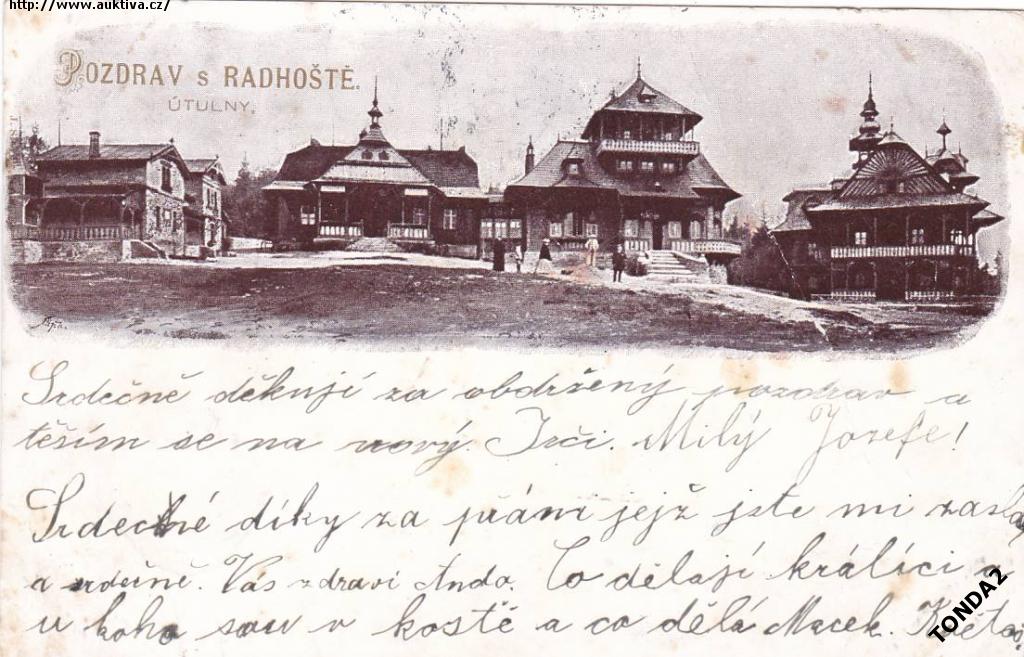 http://www.auktiva.cz/
POZDRAV S RADHOŠTĚ.
ÚTULNY.
Srdečně děkuji za obdržený pozdrav a
těším se na nový. Milý Jozefe!
Srdečné díky za přání jejž jste mi zaslal
a srdečně. Vás zdraví Anda. Co dělají králíci a
u koho sou v kostě a co dělá Macek.
TONDA2